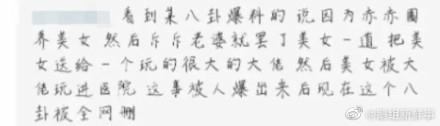 看到某八卦爆料的 说因为亦亦圈
养美女 然后斥斥老婆就罢了美女一道 把美
女送给一个玩的很大的大佬 然后美女被大
佬玩进医院 这事被人爆出来后现在这个八
卦被全网删